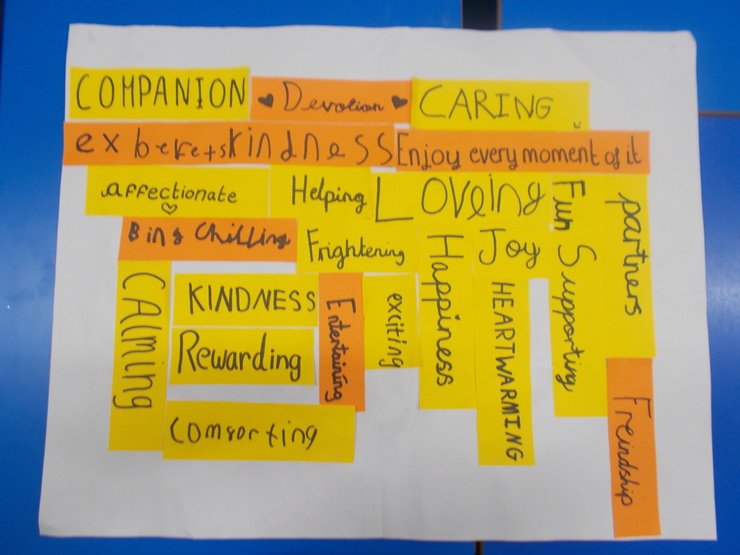 COMPANION
Devotion
CARING
exberets
kindness
Enjoy every moment of it
affectionate
Helping
Loveing
Fun
partners
Bing Chilling
Frightening
Joy
Supporting
CAlming
KINDNESS
Entertaining
exciting
Happiness
HEARTWARMING
Rewarding
Comforting
Freindship